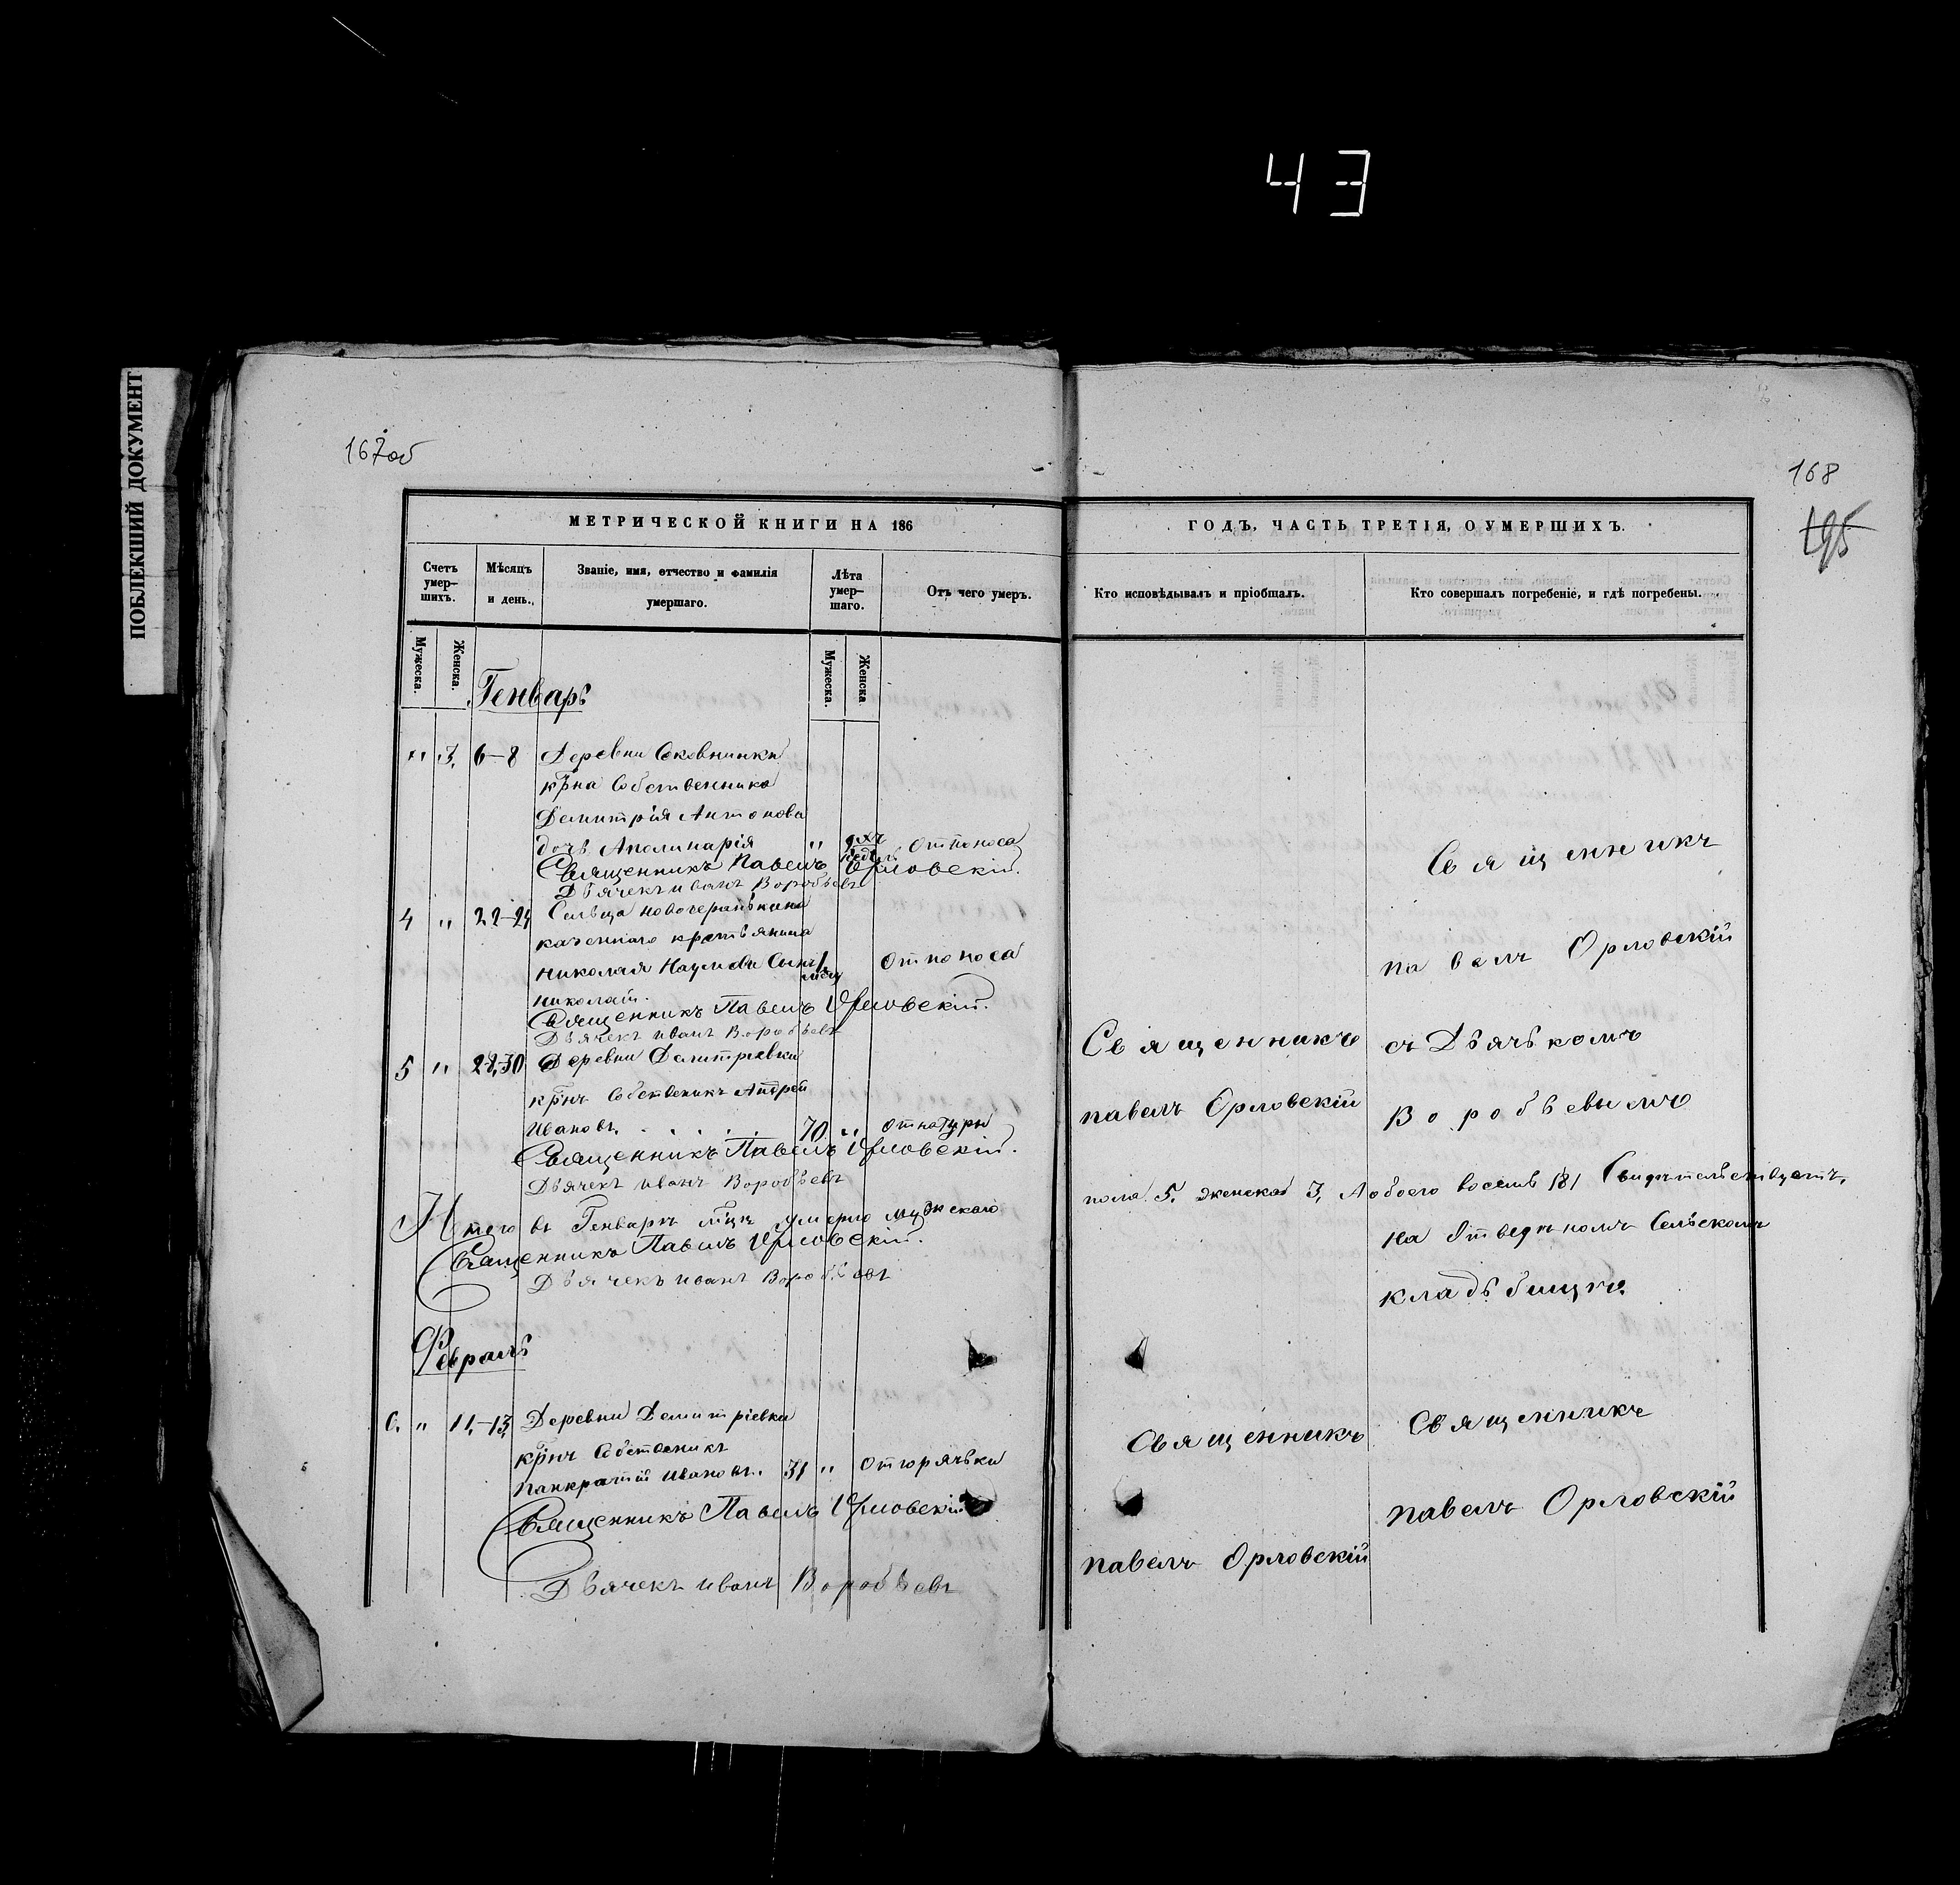 43
ПОБЛЕКШИЙ ДОКУМЕНТ
167 об
168
195
МЕТРИЧЕСКОЙ КНИГИ НА 186
ГОДЪ, ЧАСТЬ ТРЕТІЯ, О УМЕРШИХЪ.
Счетъ умер-шихъ.
Мѣсяцъ и день.
Званіе, имя, отчество и фамилія умершаго.
Лѣта умер-шаго.
Отъ чего умеръ.
Кто исповѣдывалъ и пріобщалъ.
Кто совершалъ погребеніе, и гдѣ погребены.
Мужеска.
Женска.
Мужеска.
Женска.
Генварь
" 3. 6–8 Деревни
крна Собственника
Димитрія Антонова
дочь Аполинарія " недѣль Отпоноса
Священникъ Павелъ Орловскій.
Дьячекъ иванъ Воробьевъ
4 " 22–24 Сельца
казеннаго крестьянина
николая Наумова Сынъ 1 Отпоноса
николай.
Священникъ Павелъ Орловскій.
Дьячекъ иванъ Воробьевъ
5 " 28,30 Деревни Димитріевки
крнъ Собственикъ Андрей
Ивановъ. . . . . . 70. " Отнатуры
Священникъ Павелъ Орловскій.
Дьячекъ иванъ Воробьевъ
Итого въ Генварѣ мцѣ умерло мужскаго
Священникъ Павелъ Орловскій.
Дьячекъ иванъ Воробьевъ
Февраль
6. " 11,–13, Деревни Димитріевки
крнъ Собственикъ
панкратій Ивановъ. 31 " Отгорячьки
Священникъ Павелъ Орловскій
Дьячекъ иванъ Воробьевъ
Священникъ
павелъ Орловскій
Священникъ
павелъ Орловскій
съ Дьячькомъ
Воробьевымъ
пола 5. женска 3, Аобоего восемь /8/ Свидѣтельствуетъ,
На Отведѣномъ Сельскомъ
кладьбищѣ.
Священникъ
павелъ Орловскій
Священникъ
павелъ Орловскій